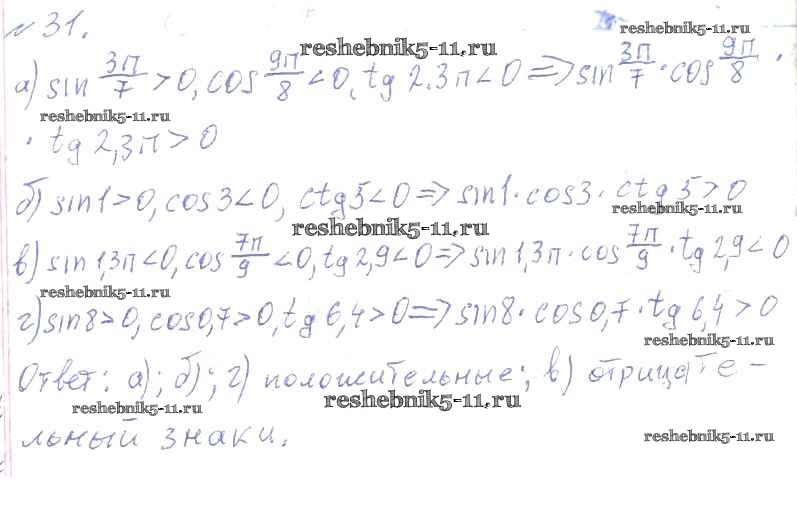 №31. reshebnik5-11.ru
reshebnik5-11.ru
а) sin 3π/7 > 0, cos 9π/8 < 0, tg 2.3π < 0 => sin 3π/7 · cos 9π/8 ·
reshebnik5-11.ru
· tg 2,3π > 0
б) sin1 > 0, cos3 < 0, ctg5 < 0 => sin1 · cos3 · ctg5 > 0
reshebnik5-11.ru
reshebnik5-11.ru
в) sin1,3π < 0, cos 7π/9 < 0, tg2,9 < 0 => sin1,3π · cos 7π/9 · tg2,9 < 0
reshebnik5-11.ru
г) sin8 > 0, cos0,7 > 0, tg6,4 > 0 => sin8 · cos0,7 · tg6,4 > 0
reshebnik5-11.ru
Ответ: а); б); г) положительные; в) отрицате-
reshebnik5-11.ru reshebnik5-11.ru
льный знаки. reshebnik5-11.ru